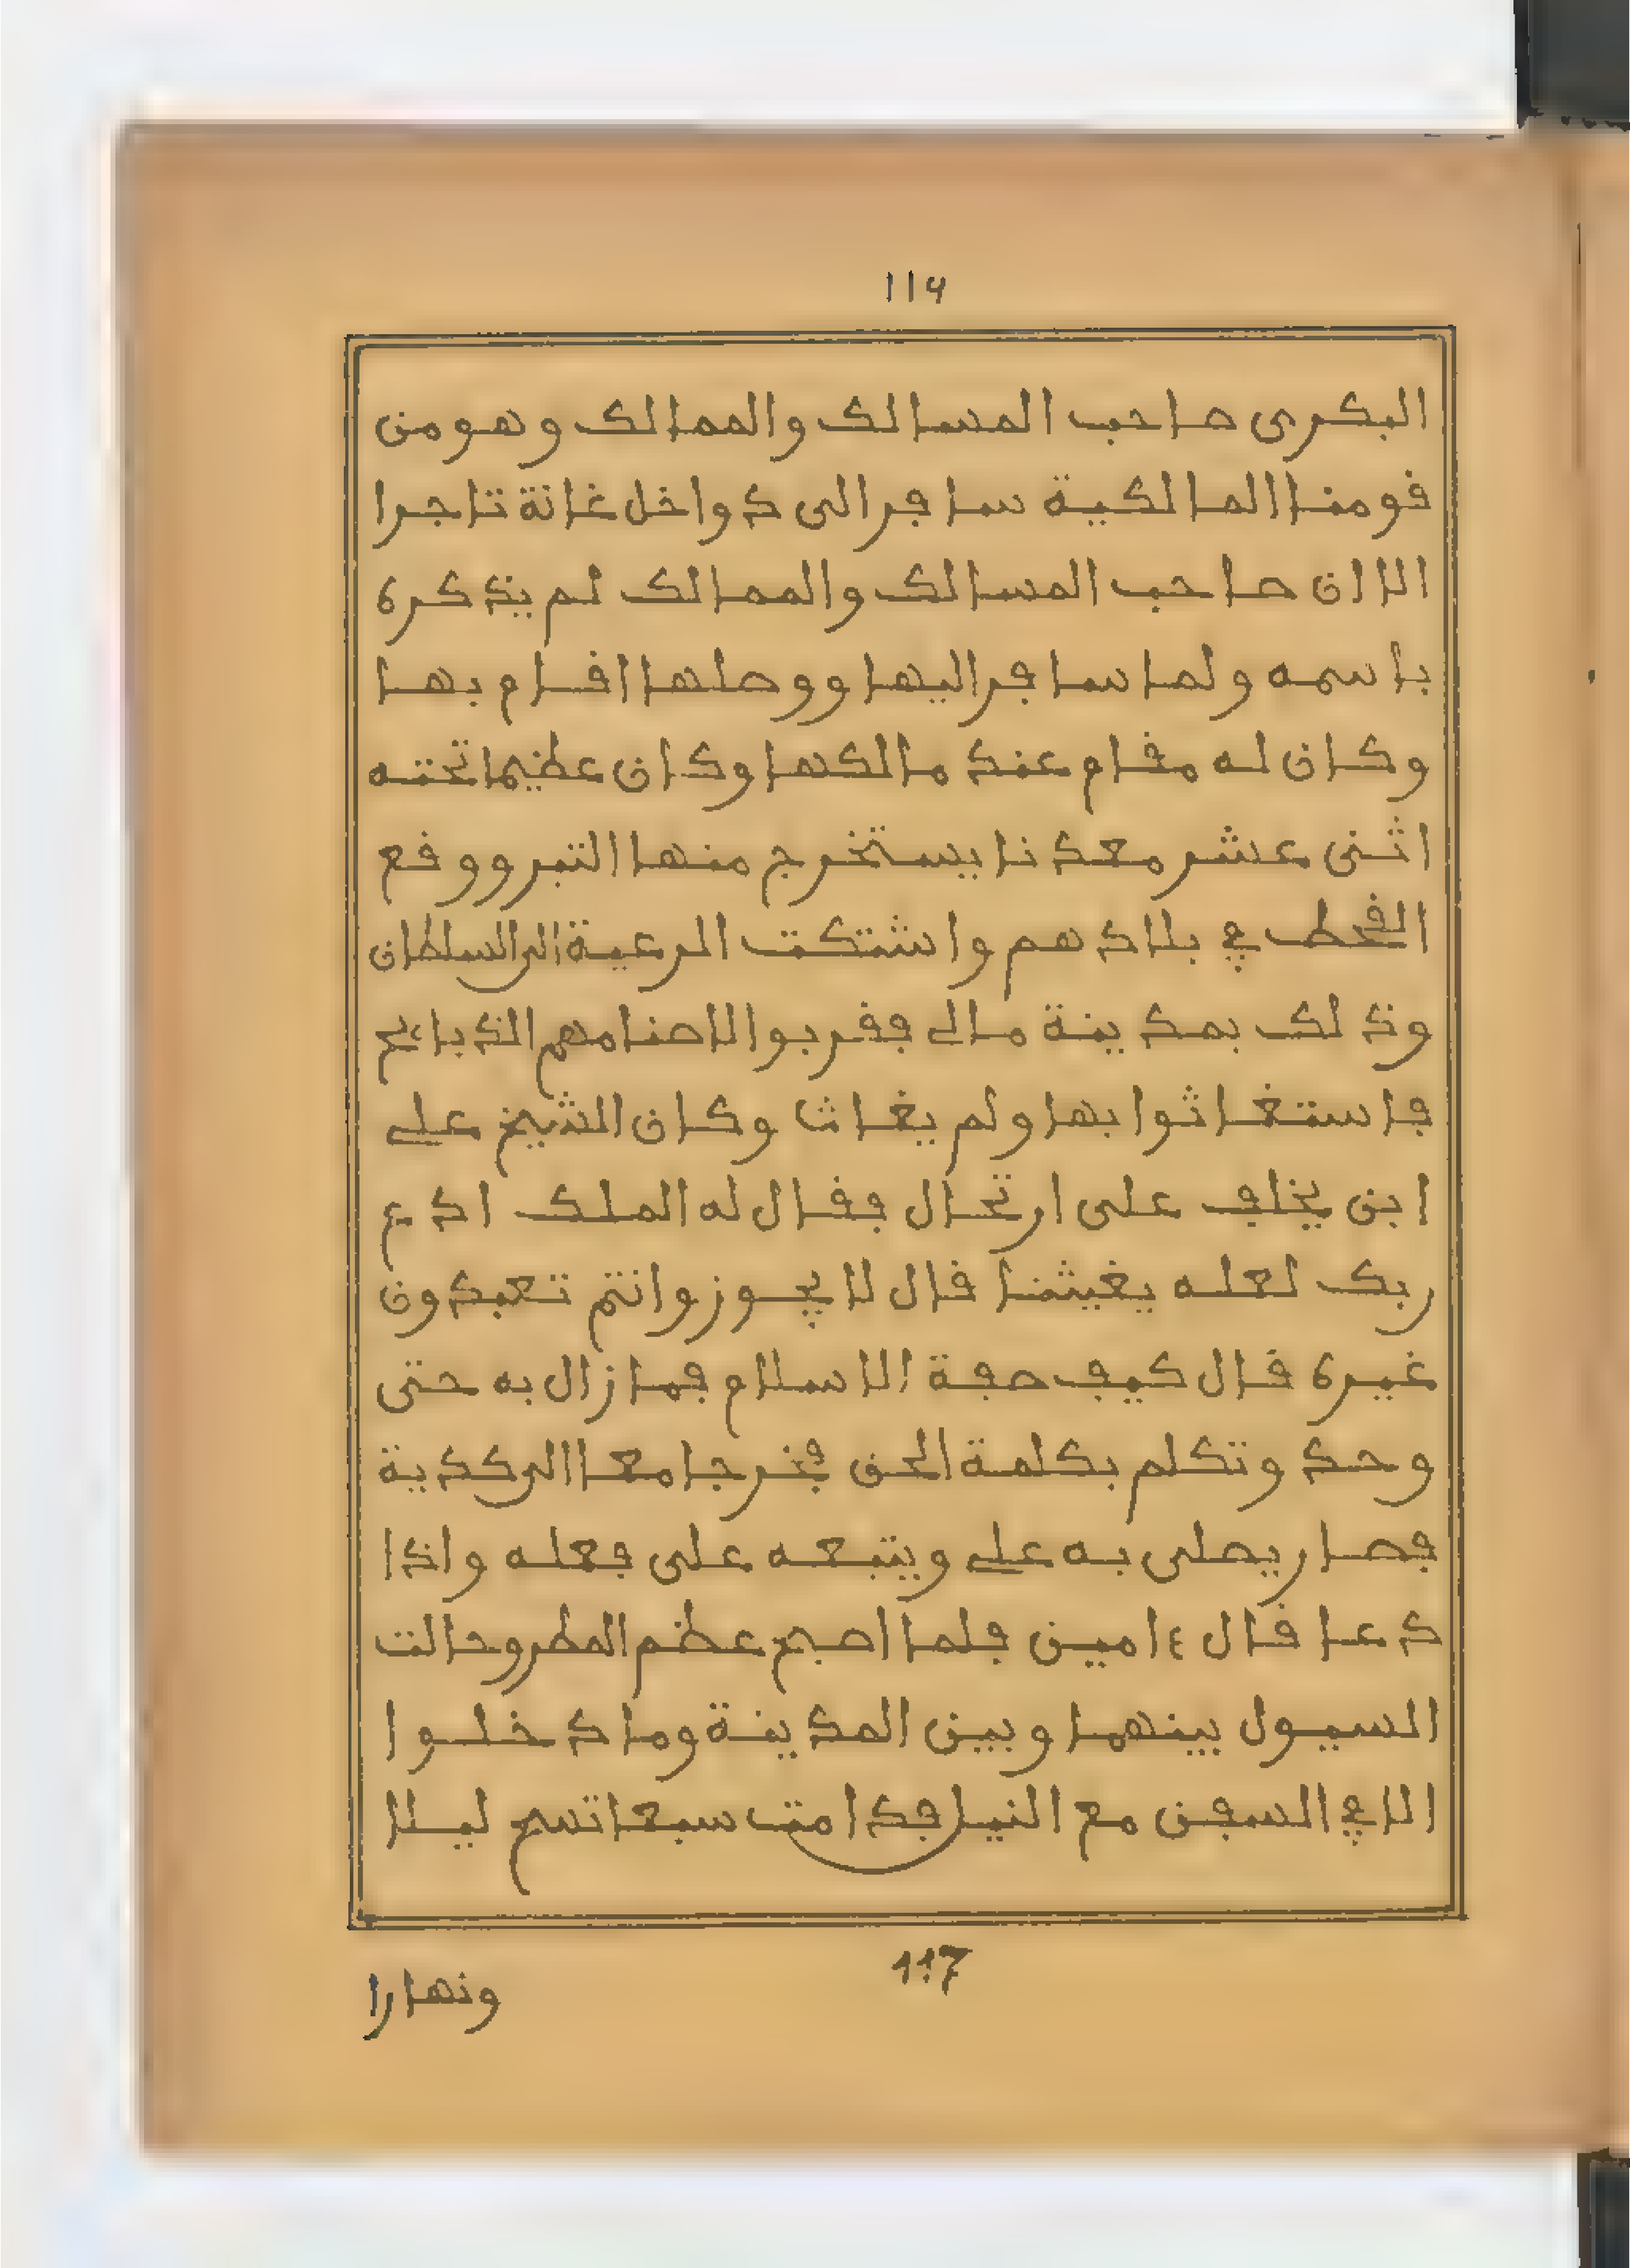 116
البكرى صاحب المسالك والممالك وهو من
قومنا المالكية سافر الى دواخل غانة تاجرا
الا ان صاحب المسالك والممالك لم يذكره
باسمه ولما سافر اليها ووصلها اقام بها
وكان له مقام عند مالكها وكان عظيما تحته
اثنى عشر معدنا يستخرج منها التبر ووقع
القحط في بلادهم واشتكت الرعية الى السلطان
وذلك بمدينة مالي فقربوا لاصنامهم الذبائح
فاستغاثوا بها ولم يغاثا وكان الشيخ علي
ابن يخلف على ارتحال فقال له الملك ادع
ربك لعله يغيثنا قال لا يجوز وانتم تعبدون
غيره قال كيف صفة الاسلام فما زال به حتى
وحد وتكلم بكلمة الحق فخرجا معا الى كدية
فصار يصلى به علي ويتبعه على فعله واذا
دعا قال ءامين فلما اصبح عظم المطر وحالت
السيول بينهما وبين المدينة وما دخلوا
الا في السفن مع النيل فدامت سبعا تسح ليلا
117
ونهارا